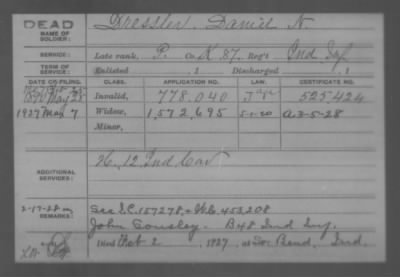 DEAD
NAME OF SOLDIER:
Dressler, Daniel N
SERVICE:
Late rank, P. Co. K 87, Reg't Ind Inf
TERM OF SERVICE:
Enlisted , 1 Discharged , 1
DATE OF FILING. CLASS. APPLICATION NO. LAW. CERTIFICATE NO.
1890 May 28 Invalid, 778.040 525424
1927 May 7 Widow, 1,572,695 5-1-20 A.3-5-28
Minor,
ADDITIONAL SERVICES:
H, 12, Ind Cav
2-17-28
REMARKS:
See I.C. 157278 & W.C. 453208
John Cousley. B 48 Ind Inf.
Died Feb 2, 1927, at So. Bend, Ind.